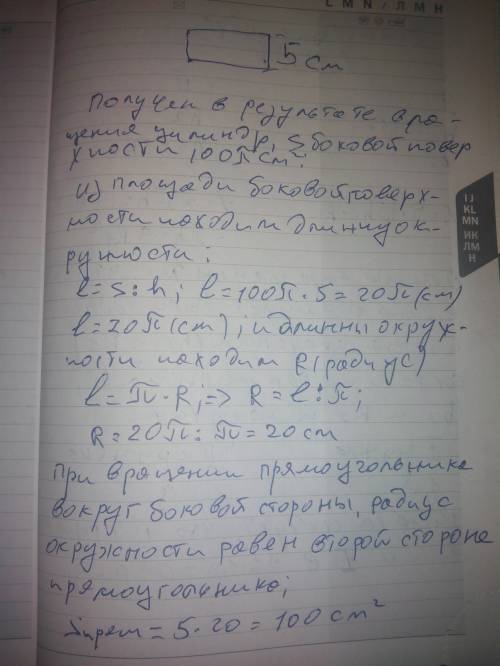 L M N / Л М Н
5 см
Получен в результате вра-
щения цилиндр, S боковой повер
хности 100π см².
Из площади боковой поверх-
ности находим длинну ок-
ружности:
l = S : h; l = 100π : 5 = 20π (см)
l = 20π (cm); из длинны окруж-
ности находим R (радиус)
l = π · R; => R = l : π;
R = 20π : π = 20 cm
При вращении прямоугольника
вокруг боковой стороны, радиус
окружности равен второй стороне
прямоугольника;
Sпрям = 5 · 20 = 100 cm²
IJ
KL
MN
ИК
ЛМ
Н